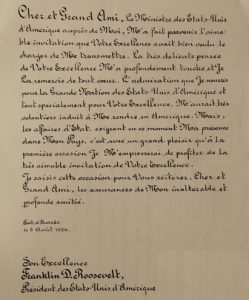 Cher et Grand Ami, Le Ministre des Etats-Unis
d'Amérique auprès de Moi, M'a fait parvenir l'aima-
ble invitation que Votre Excellence avait bien voulu le
charger de Me transmettre. La très délicate pensée
de Votre Excellence M'a profondément touché et Je
La remercie de tout coeur. L'admiration que Je nourris
pour la Grande Nation des Etats-Unis d'Amérique et
tout spécialement pour Votre Excellence, M'aurait très
volontiers induit à Me rendre en Amérique. Mais,
les affaires d'Etat, exigeant en ce moment Ma présence
dans Mon Pays, c'est avec un grand plaisir qu'à la
première occasion Je M'empresserai de profiter de la
très aimable invitation de Votre Excellence.
Je saisis cette occasion pour Vous réitérer, Cher et
Grand Ami, les assurances de Mon inaltérable et
profonde amitié.
le 8 Août 1936.
Son Excellence
Franklin D. Roosevelt,
Président des Etats-Unis d'Amérique